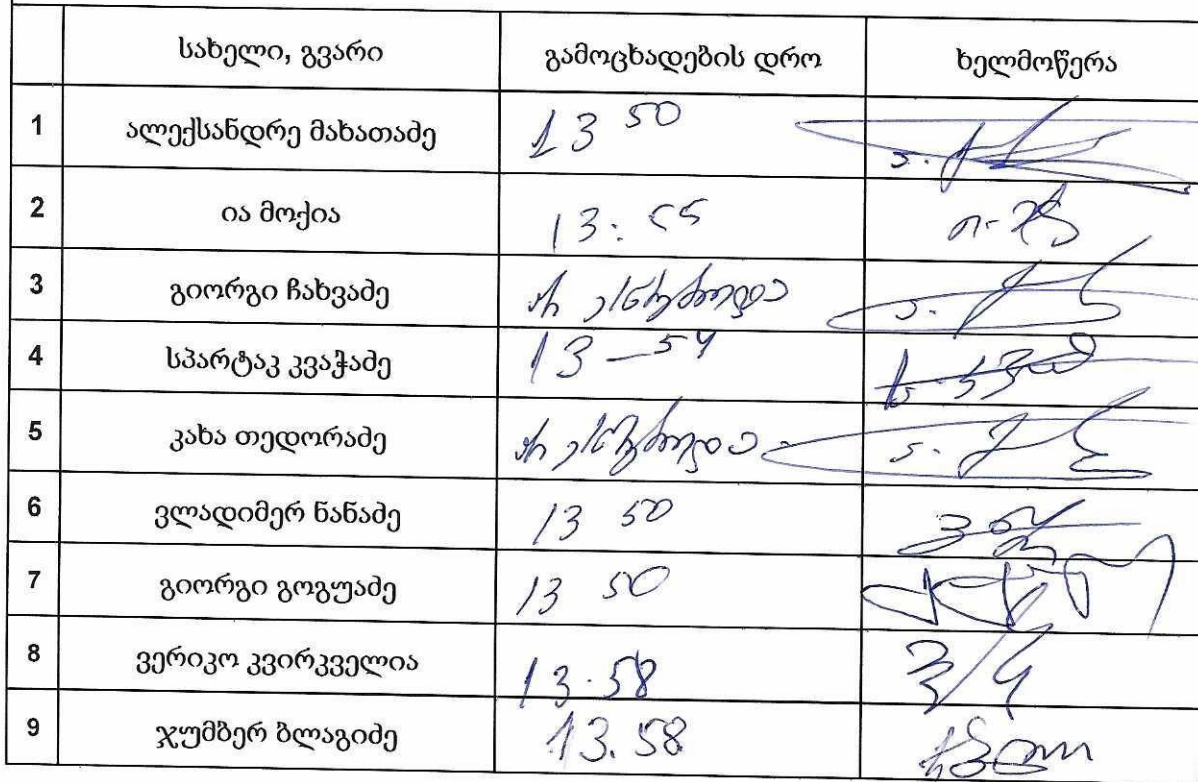 სახელი, გვარი გამოცხადების დრო ხელმოწერა
1 ალექსანდრე მახათაძე 13 50
2 ია მოქია 13:55
3 გიორგი ჩახვაძე არ ესწრებოდა
4 სპარტაკ კვაჭაძე 13-54
5 კახა თედორაძე არ ესწრებოდა
6 ვლადიმერ ნანაძე 13 50
7 გიორგი გოგუაძე 13 50
8 ვერიკო კვირკველია 13.58
9 ჯუმბერ ბლაგიძე 13.58